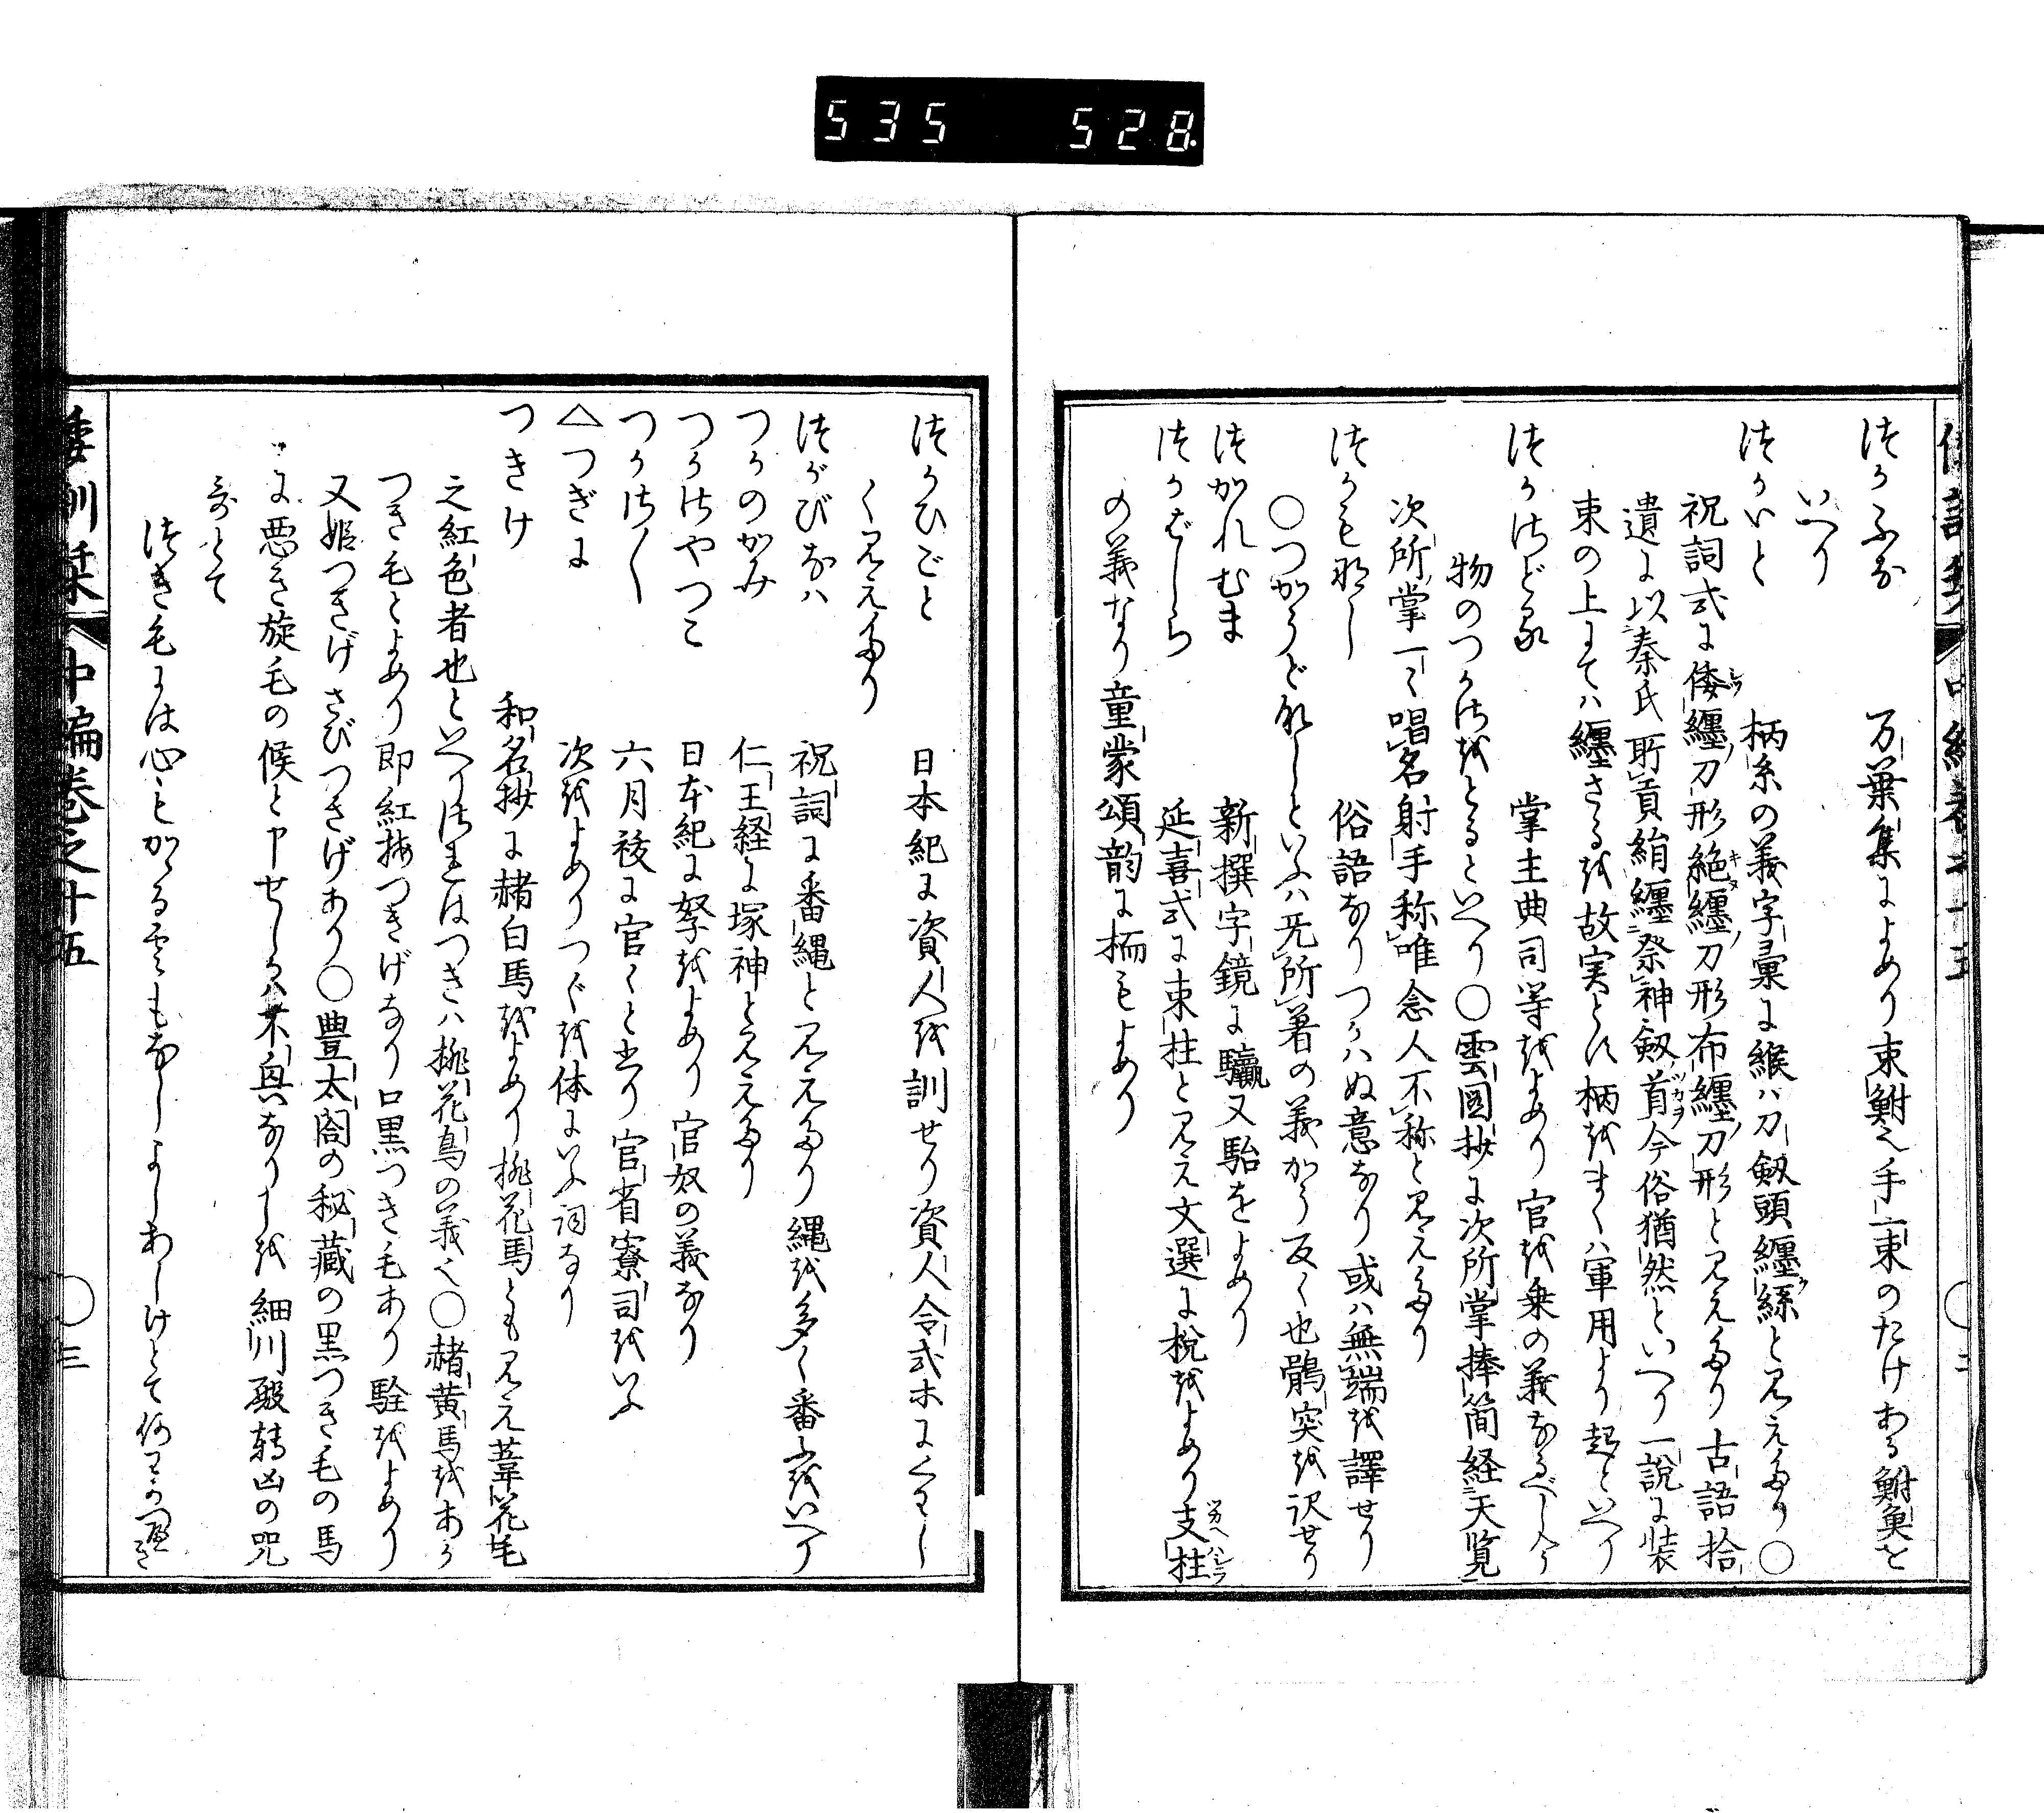 535 528
つかふな 万葉集によめり束鮒也手一束のたけある鮒魚を
いへり
つかいと 柄糸の義字彙に緱ハ刀剱頭纒絲と見えたり○
祝詞式に倭纒刀形絁纒刀形布纒刀形と見えたり古語拾
遺に以秦氏所貢絹纒祭神剱首今俗猶然といへり一説に装
束の上にてハ纒さるを故実とス柄をまくハ軍用より起といへり
つかさどる 掌主典司等をよめり官を乗の義なるべし人の
物のつかさをとるといへり○雲図抄に次所掌捧簡経天覧
次所掌一々唱名射手称唯念人不称と見えたり
つかも那し 俗語なりつかハぬ意なり或ハ無端を譯せり
○つかうど那しといふハ无所著の義かう反く也鶻突を訳せり
つかれむま 新撰字鏡に驘又駘をよめり
つかばしら 延喜式に束柱と見え文選に梲をよめり支柱
の義なり童蒙頌韵に栭もよめり
つかひごと 日本紀に資人を訓せり資人令式ホにくはし
く見えたり
つがひなハ 祝詞に番縄と見えたり縄を多く番ふをいへり
つかのかみ 仁王経に塚神と見えたり
つかさやつこ 日本紀に孥をよめり官奴の義なり
つかさ〳〵 六月祓に官々と出り官省寮司をいふ
△つぎに 次をよめりつぐを体にいふ詞なり
つきけ 和名抄に赭白馬をよめり桃花馬とも見え葦花毛
之紅色者也といへりされはつきハ桃花鳥の義也○赭黄馬をあか
つき毛とよめり即紅梅つきげなり口黒つき毛あり駩をよめり
又姫つきげさびつきげあり○豊太閤の秘藏の黒つき毛の馬
に悪き旋毛の候と申せしハ不興なりしを細川殿転凶の咒
哥とて
つき毛には心もかゝる雲もなしよしあしけとて何にかつへき
倭訓栞 中編巻之十五 ○三